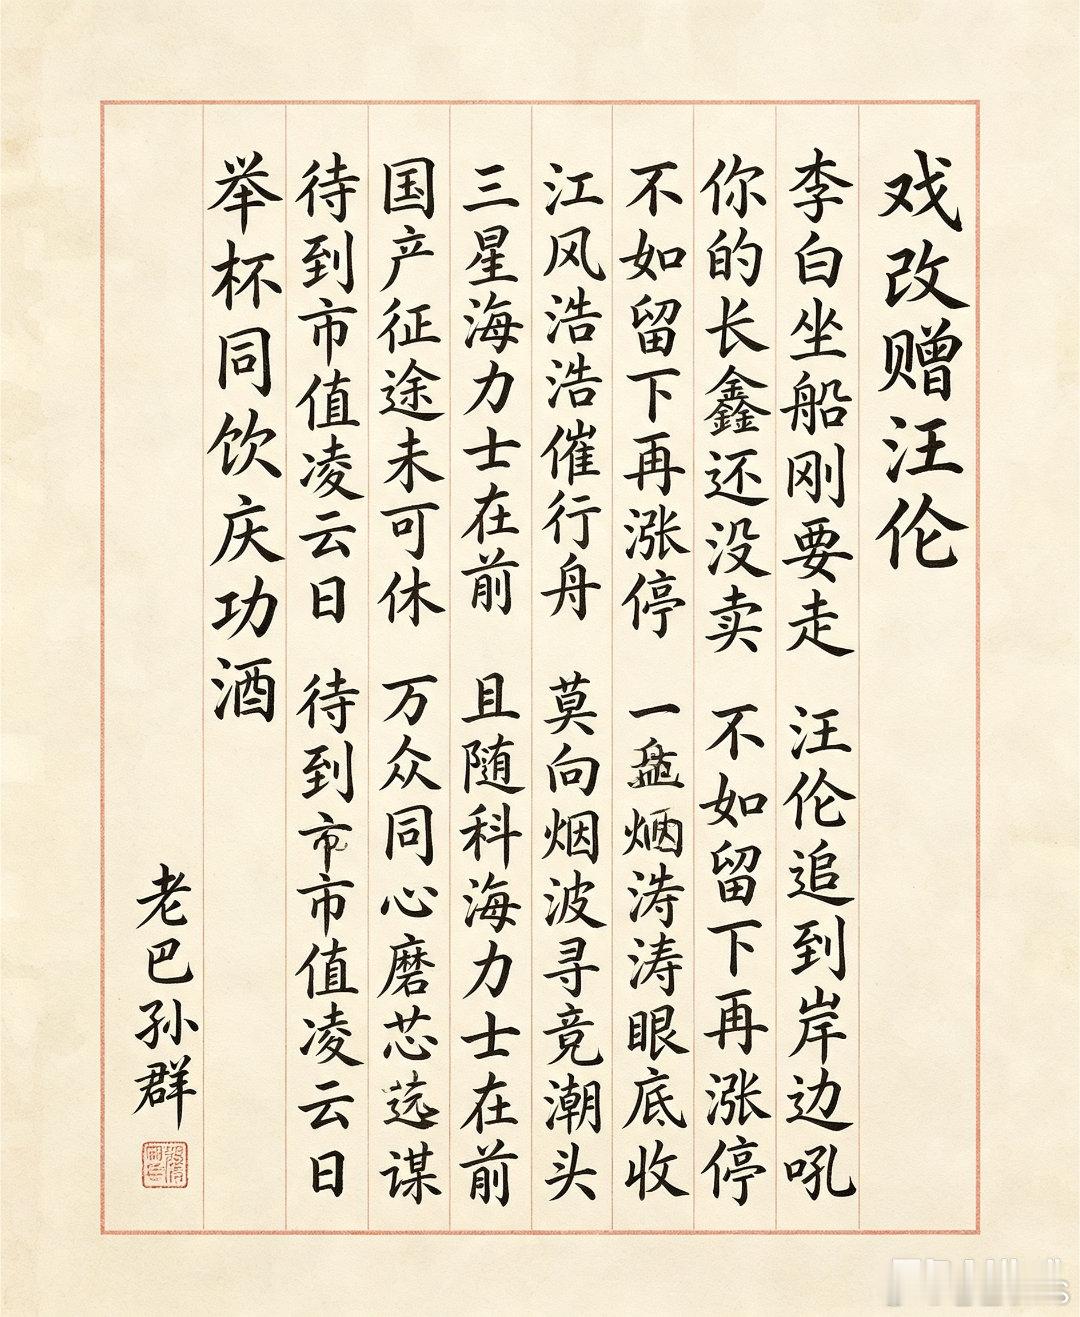 戏改赠汪伦
李白坐船刚要走 汪伦追到岸边吼
你的长鑫还没卖 不如留下再涨停
不如留下再涨停 一烟涛涛眼底收
江风浩浩催行舟 莫向烟波寻竟潮头
三星海力士在前 且随科海力士在前
国产征途未可休 万众同心磨芯谋
待到市值凌云日 待到市市值凌云日
举杯同饮庆功酒
老巴孙群